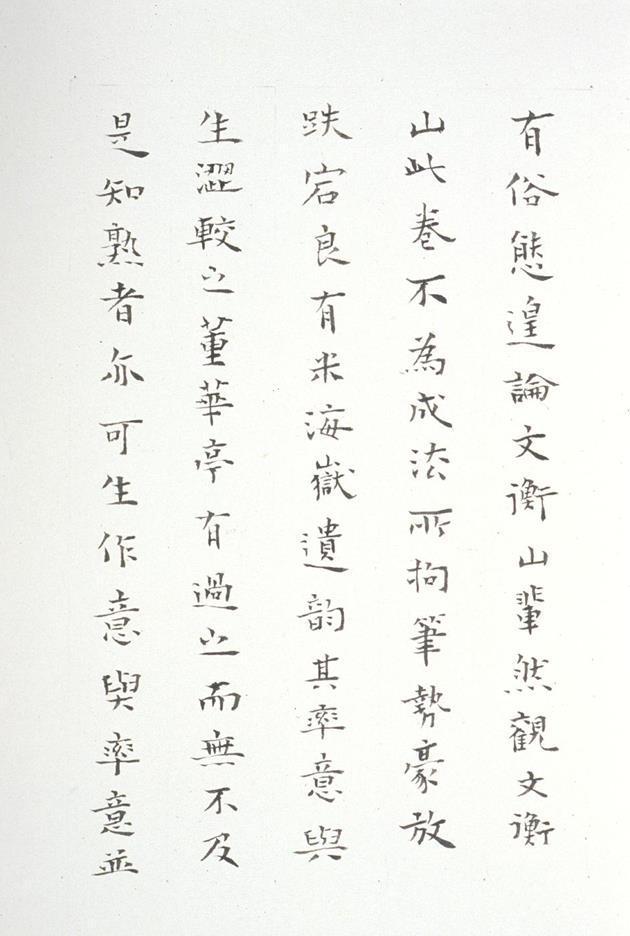 有俗態遑論文衡山輩然觀文衡
山此卷不為成法所拘筆勢豪放
跌宕良有米海嶽遺韵其率意與
生澀較之董華亭有過之而無不及
是知熟者亦可生作意與率意並